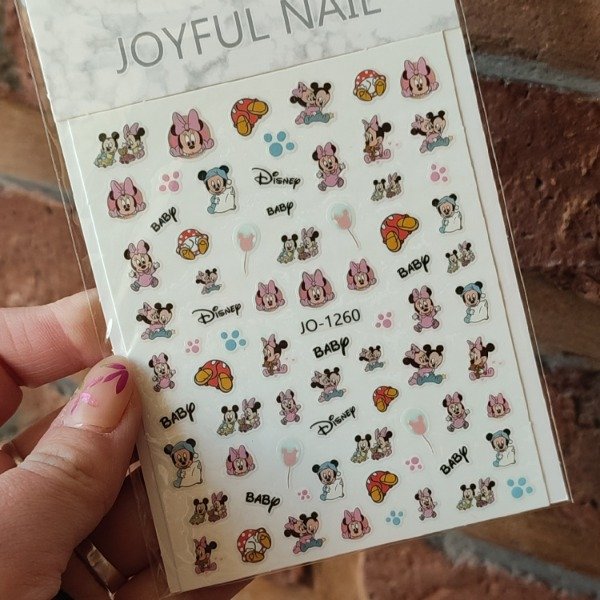 JOYFUL NAIL
Disney
BABY
BABY
BABY
Disney
JO-1260
BABY
BABY
Disney
BABY
BABY